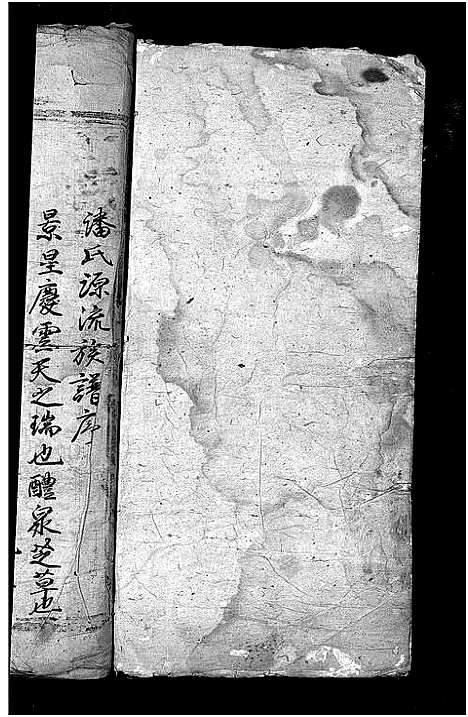 潘氏源流族譜序
景星慶雲天之瑞也醴泉芝草也